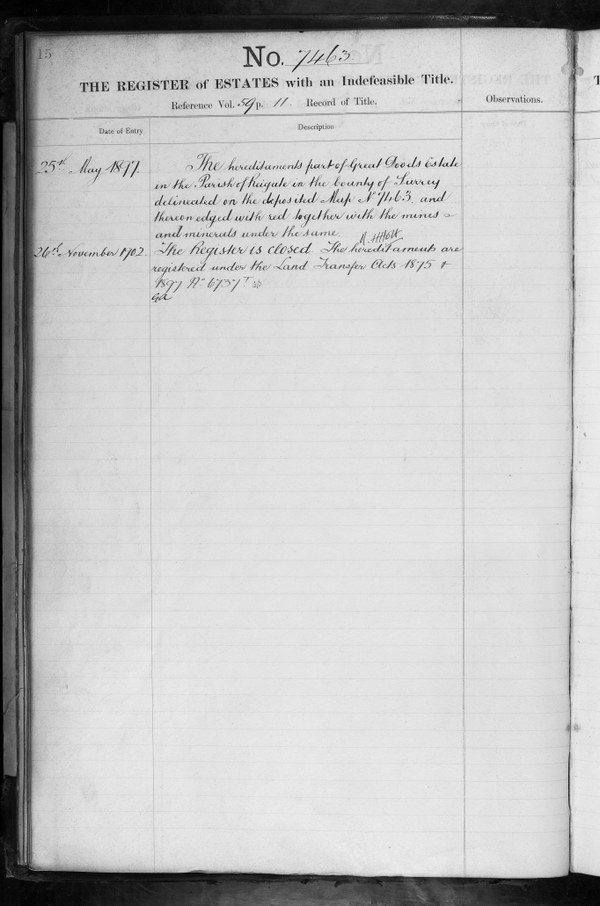 15
No. 7463
THE REGISTER of ESTATES with an Indefeasible Title.
Reference Vol. 59 p. 11 Record of Title.
Observations.
Date of Entry
Description
25th May 1897.
The hereditaments part of Great Doods Estate
in the Parish of Reigate in the county of Surrey
delineated on the deposited Map No 7463 and
thereon edged with red together with the mines
and minerals under the same.
26th November 1902.
The Register is closed. The hereditaments are
registered under the Land Transfer Acts 1875 &
1897 No 6737